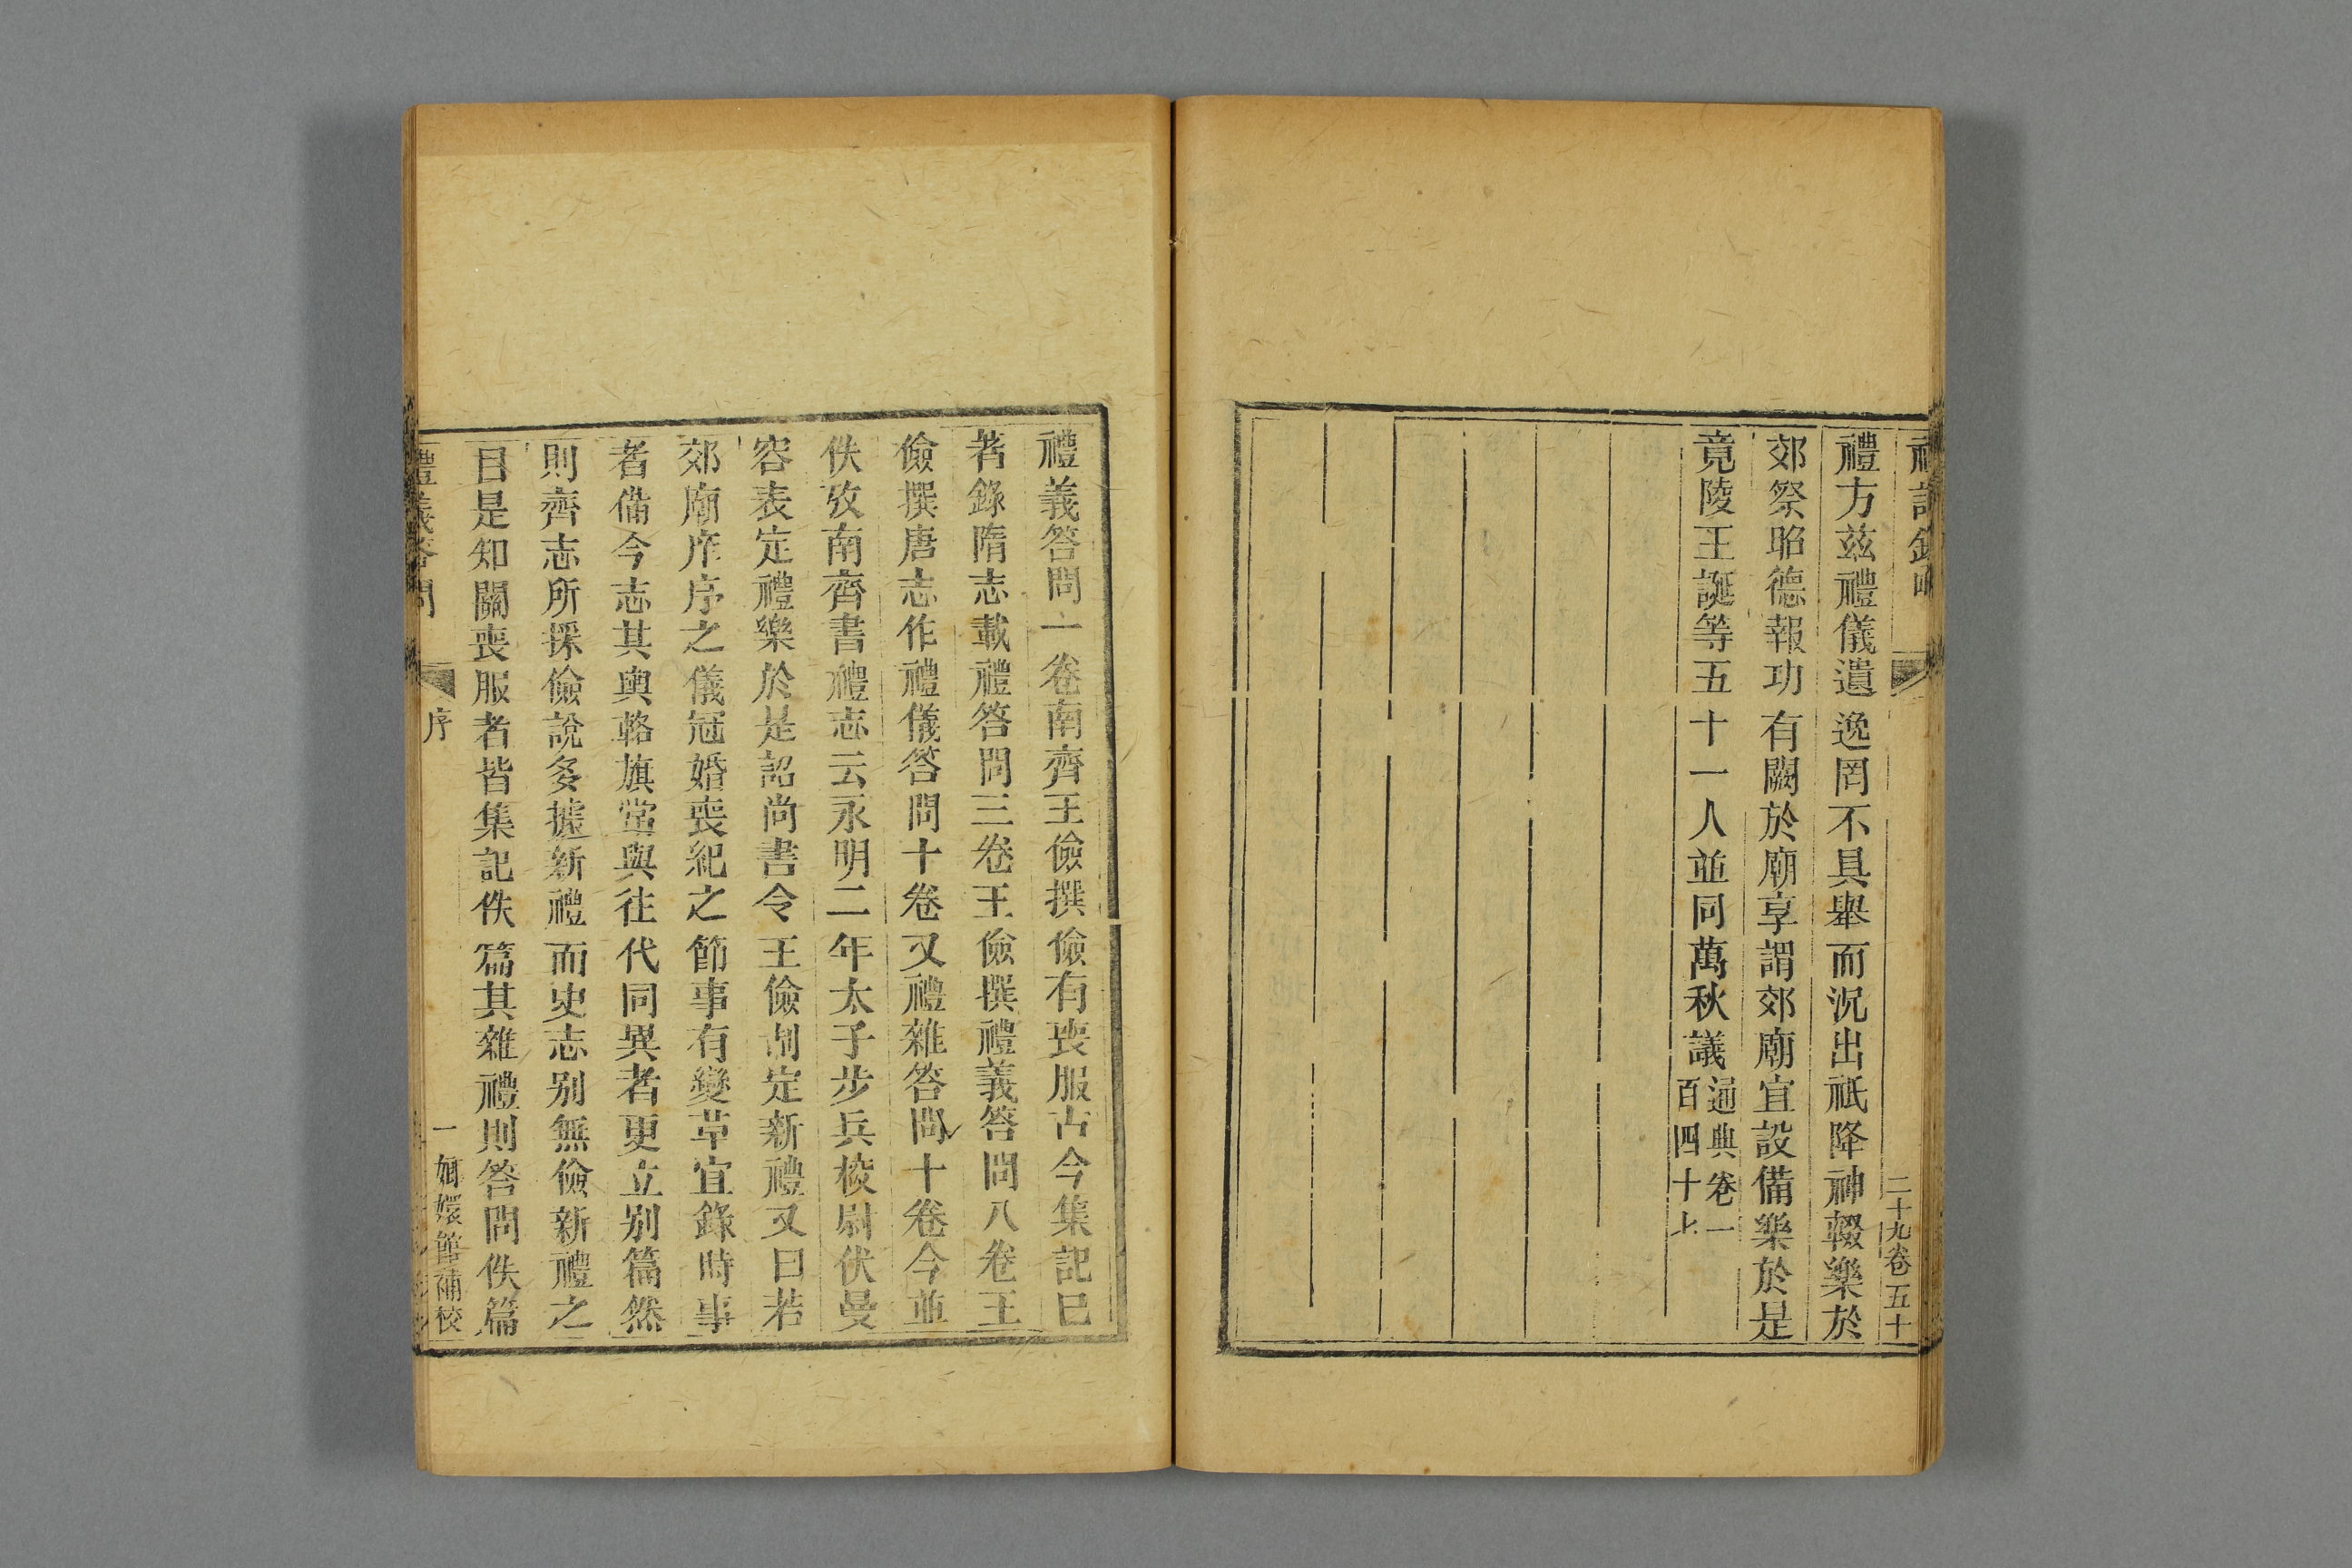 二十九卷五十
禮方兹禮儀遺逸罔不具舉而況出祇降神輟樂於
郊祭昭德報功有闕於廟享謂郊廟宜設備樂於是
竟陵王誕等五十一人並同萬秋議通典卷一
百四十七
禮義答問一卷南齊王儉撰儉有喪服古今集記已
著錄隋志載禮答問三卷王儉撰禮義答問八卷王
儉撰唐志作禮儀答問十卷又禮雜答問十卷今並
佚攷南齊書禮志云永明二年太子步兵校尉伏曼
容表定禮樂於是詔尚書令王儉制定新禮又曰若
郊廟庠序之儀冠婚喪紀之節事有變革宜錄時事
者備今志其輿輅旗常與往代同異者更立別篇然
則齊志所採儉說多據新禮而史志别無儉新禮之
目是知關喪服者皆集記佚篇其雜禮則答問佚篇
禮義答問
序
一
嫏嬛館補校